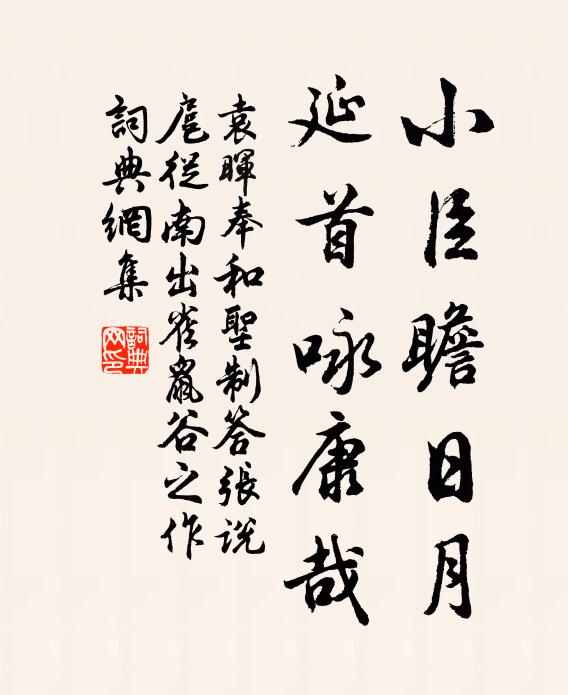 小臣瞻日月
延首咏康哉
袁暉奉和聖制答張說
扈從南出雀鼠谷之作
詞典網集
詞典网印